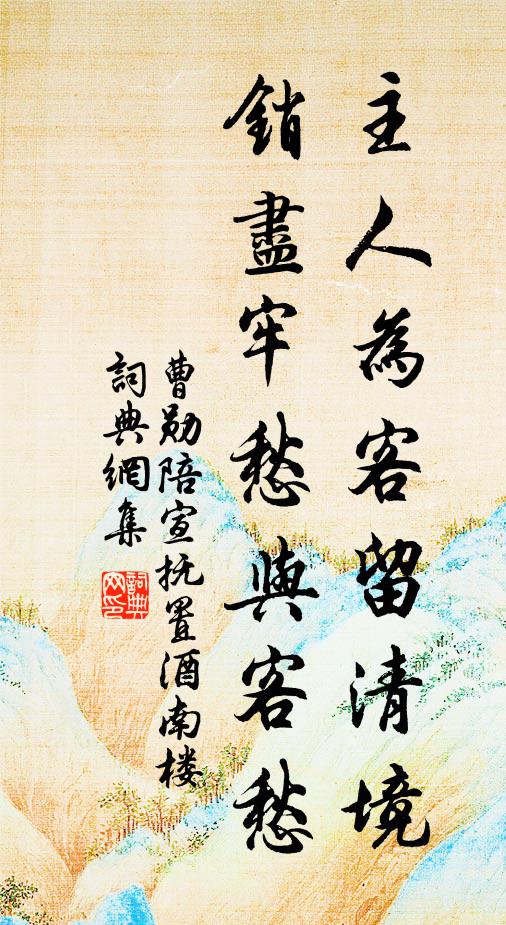 主人為客留清境
銷盡牢愁與客愁
曹勛陪宣抚置酒南楼
詞典網集
詞典網印